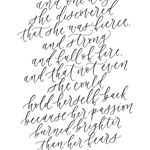 and one day
she discovered
that she was fierce,
and strong
and full of fire,
and that not even
she could
hold herself back
because her passion
burned brighter
than her fears